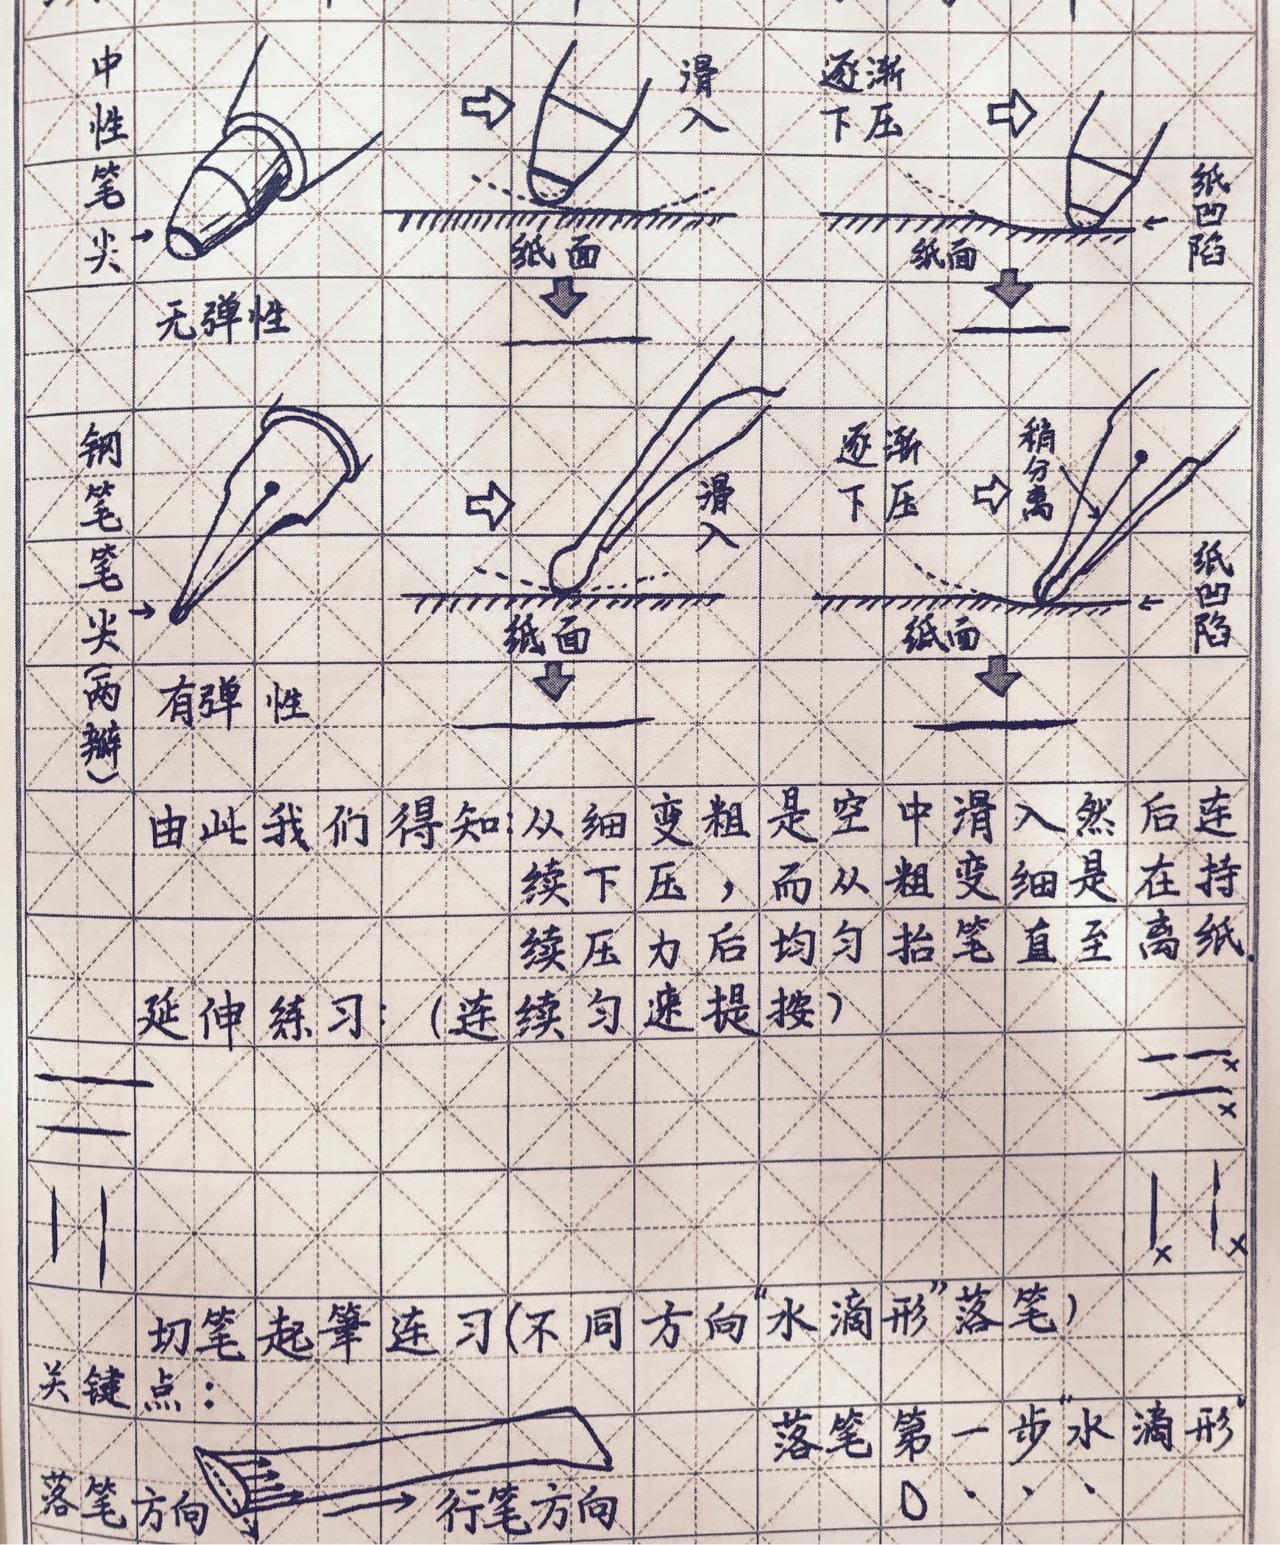 中性笔尖
滑入
逐渐下压
纸凹陷
纸面
纸面
无弹性
钢笔笔尖(两瓣)
滑入
逐渐下压
稍分离
纸凹陷
纸面
纸面
有弹性
由此我们得知:从细变粗是空中滑入然后连
续下压,而从粗变细是在持
续压力后均匀抬笔直至离纸.
延伸练习:(连续匀速提按)
切笔起筆连习(不同方向“水滴形”落笔)
关键点:
落笔第一步“水滴形”
落笔方向
行笔方向